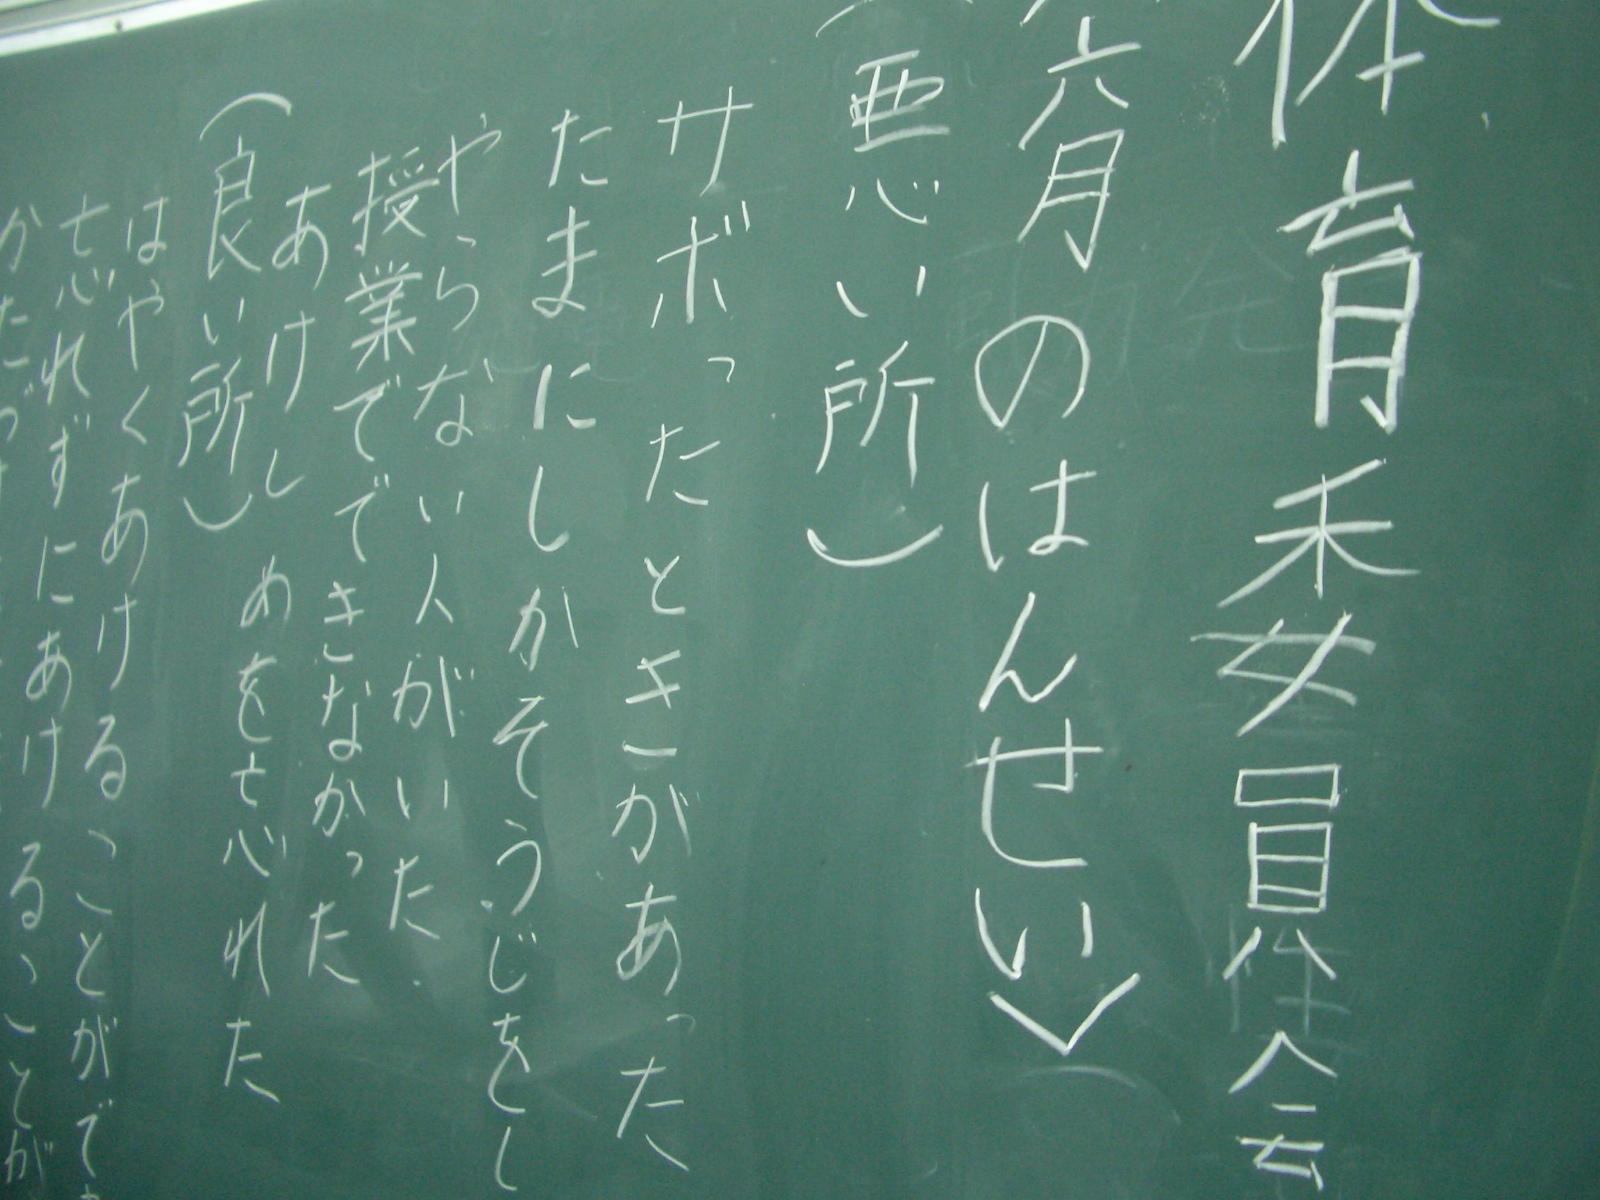 体育委員会
六月のはんせい
(悪い所)
サボったときがあった
たまにしかそうじをし
やらない人がいた
授業でできなかった
あけしめをを忘れた
(良い所)
はやくあけることがで
忘れずにあけることが
かたづけ